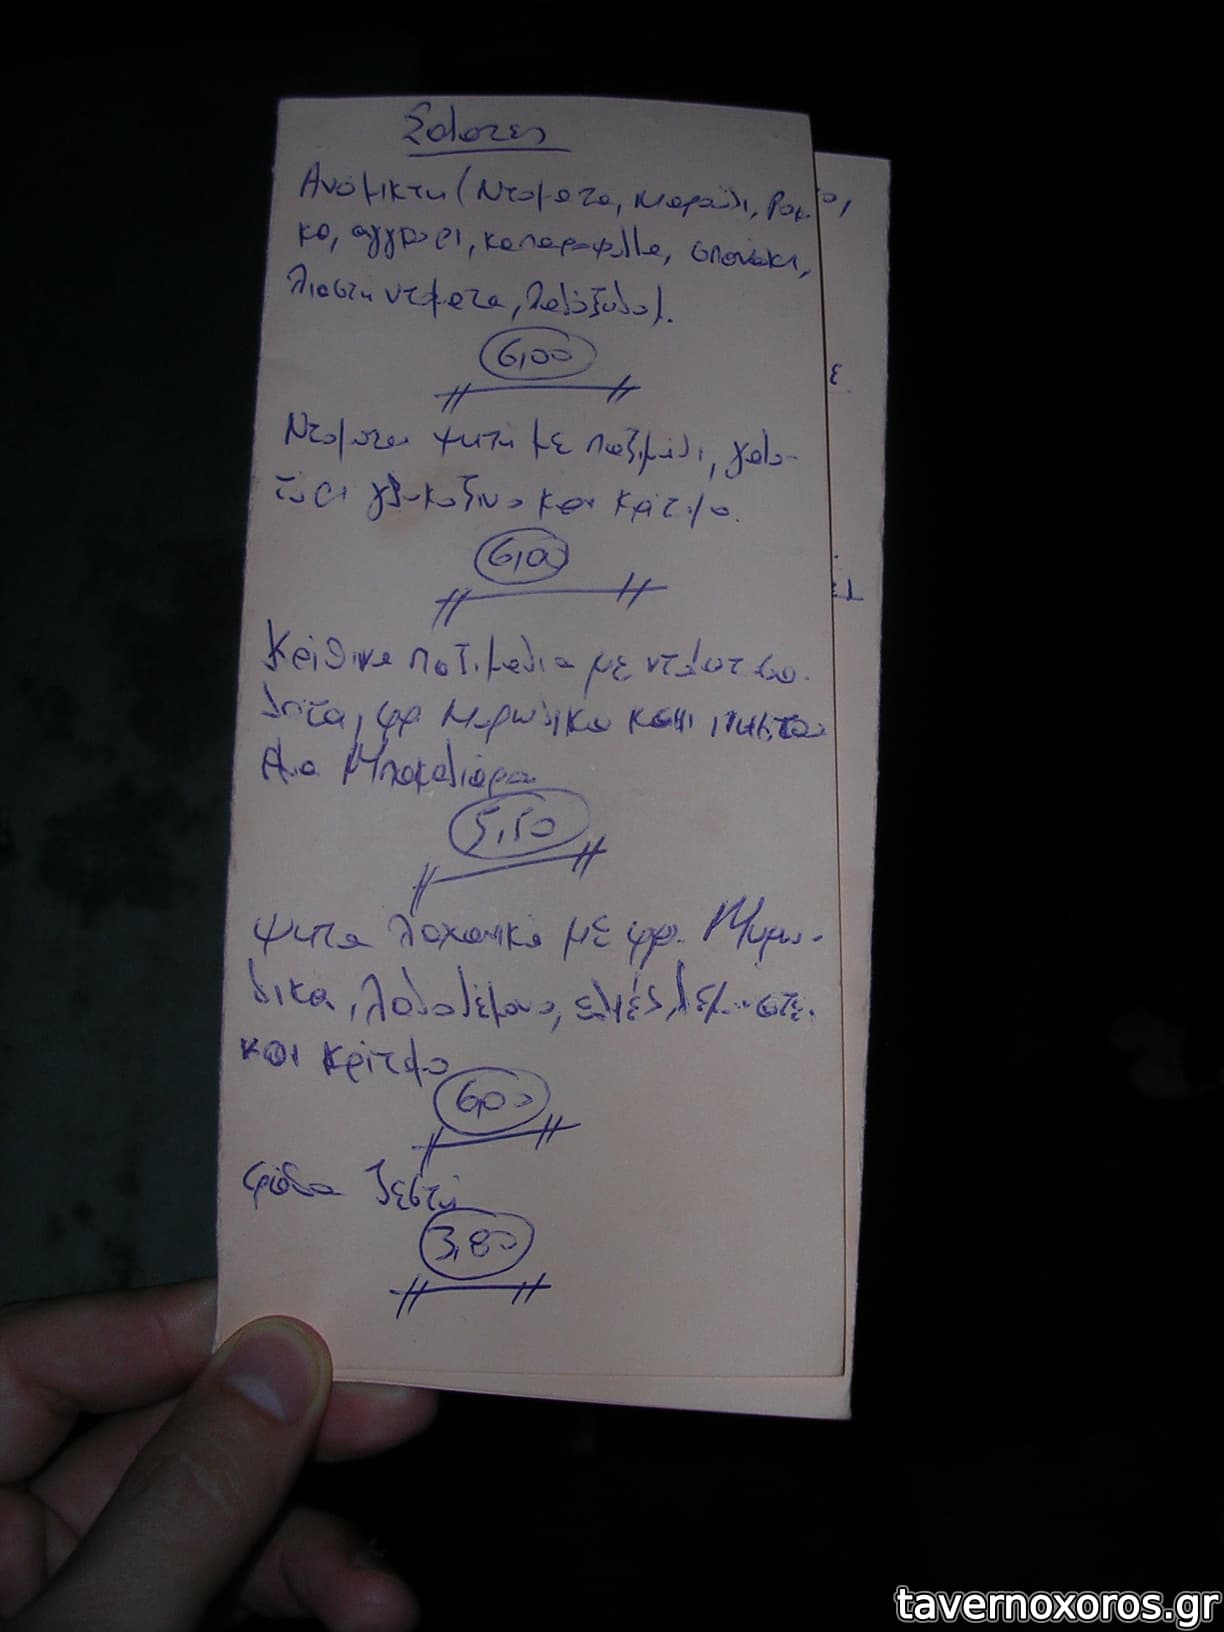 Σαλάτες
Ανάμικτη (Ντομάτα, Μαρούλι, Ρόκα,
κα, αγγούρι, καπαρόφυλλα, σπανάκι,
λιαστή ντομάτα, λαδόξυδο).
6,00
Ντομάτα ψητή με παξιμάδι, γαλο-
τύρι γλυκόξινο και κρίταμο.
6,00
Κρίθινα παξιμάδια με ντομάτα
φρ. Μυρωδικά και
Μπακαλιάρο
5,50
ψητά λαχανικά με φρ. Μυρω-
δικά, λαδολέμονο, ελιές,
και κρίταμο
6,00
φάβα ζεστή
3,80
tavernoxoros.gr